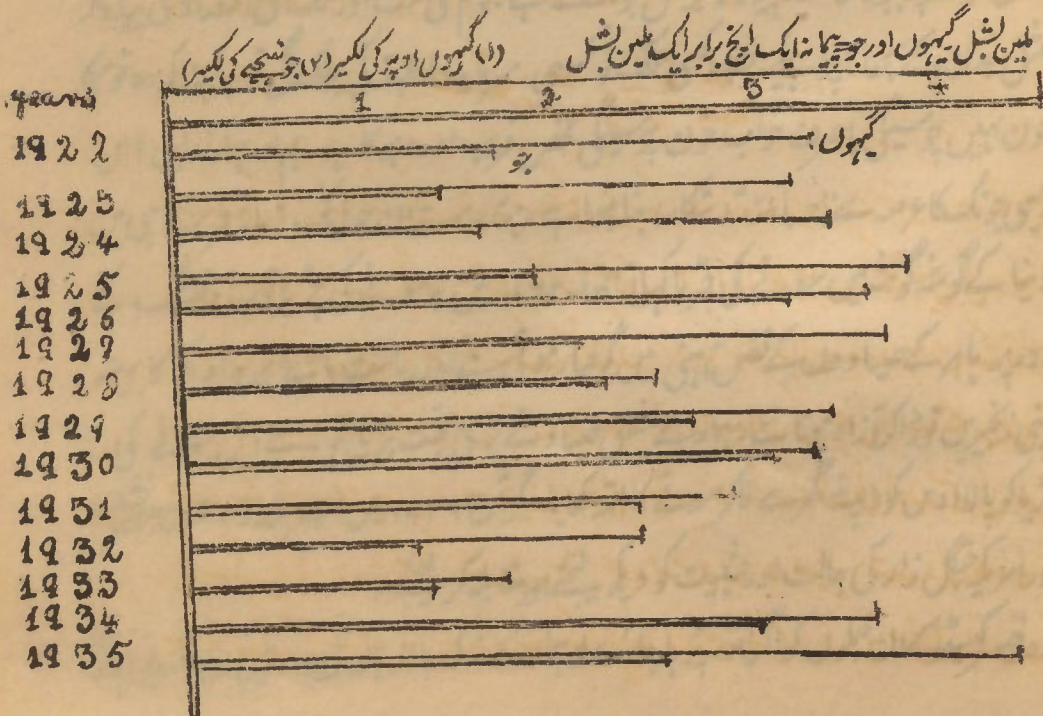 ملین بشل گیہوں اور جو پیمانہ ایک انچ برابر ایک ملین بشل (۱) گیہوں اوپر کی لکیر (۲) جو نیچے کی لکیر)
years 1 2 3 4
1922 گیہوں
جو
1923
1924
1925
1926
1927
1928
1929
1930
1931
1932
1933
1934
1935